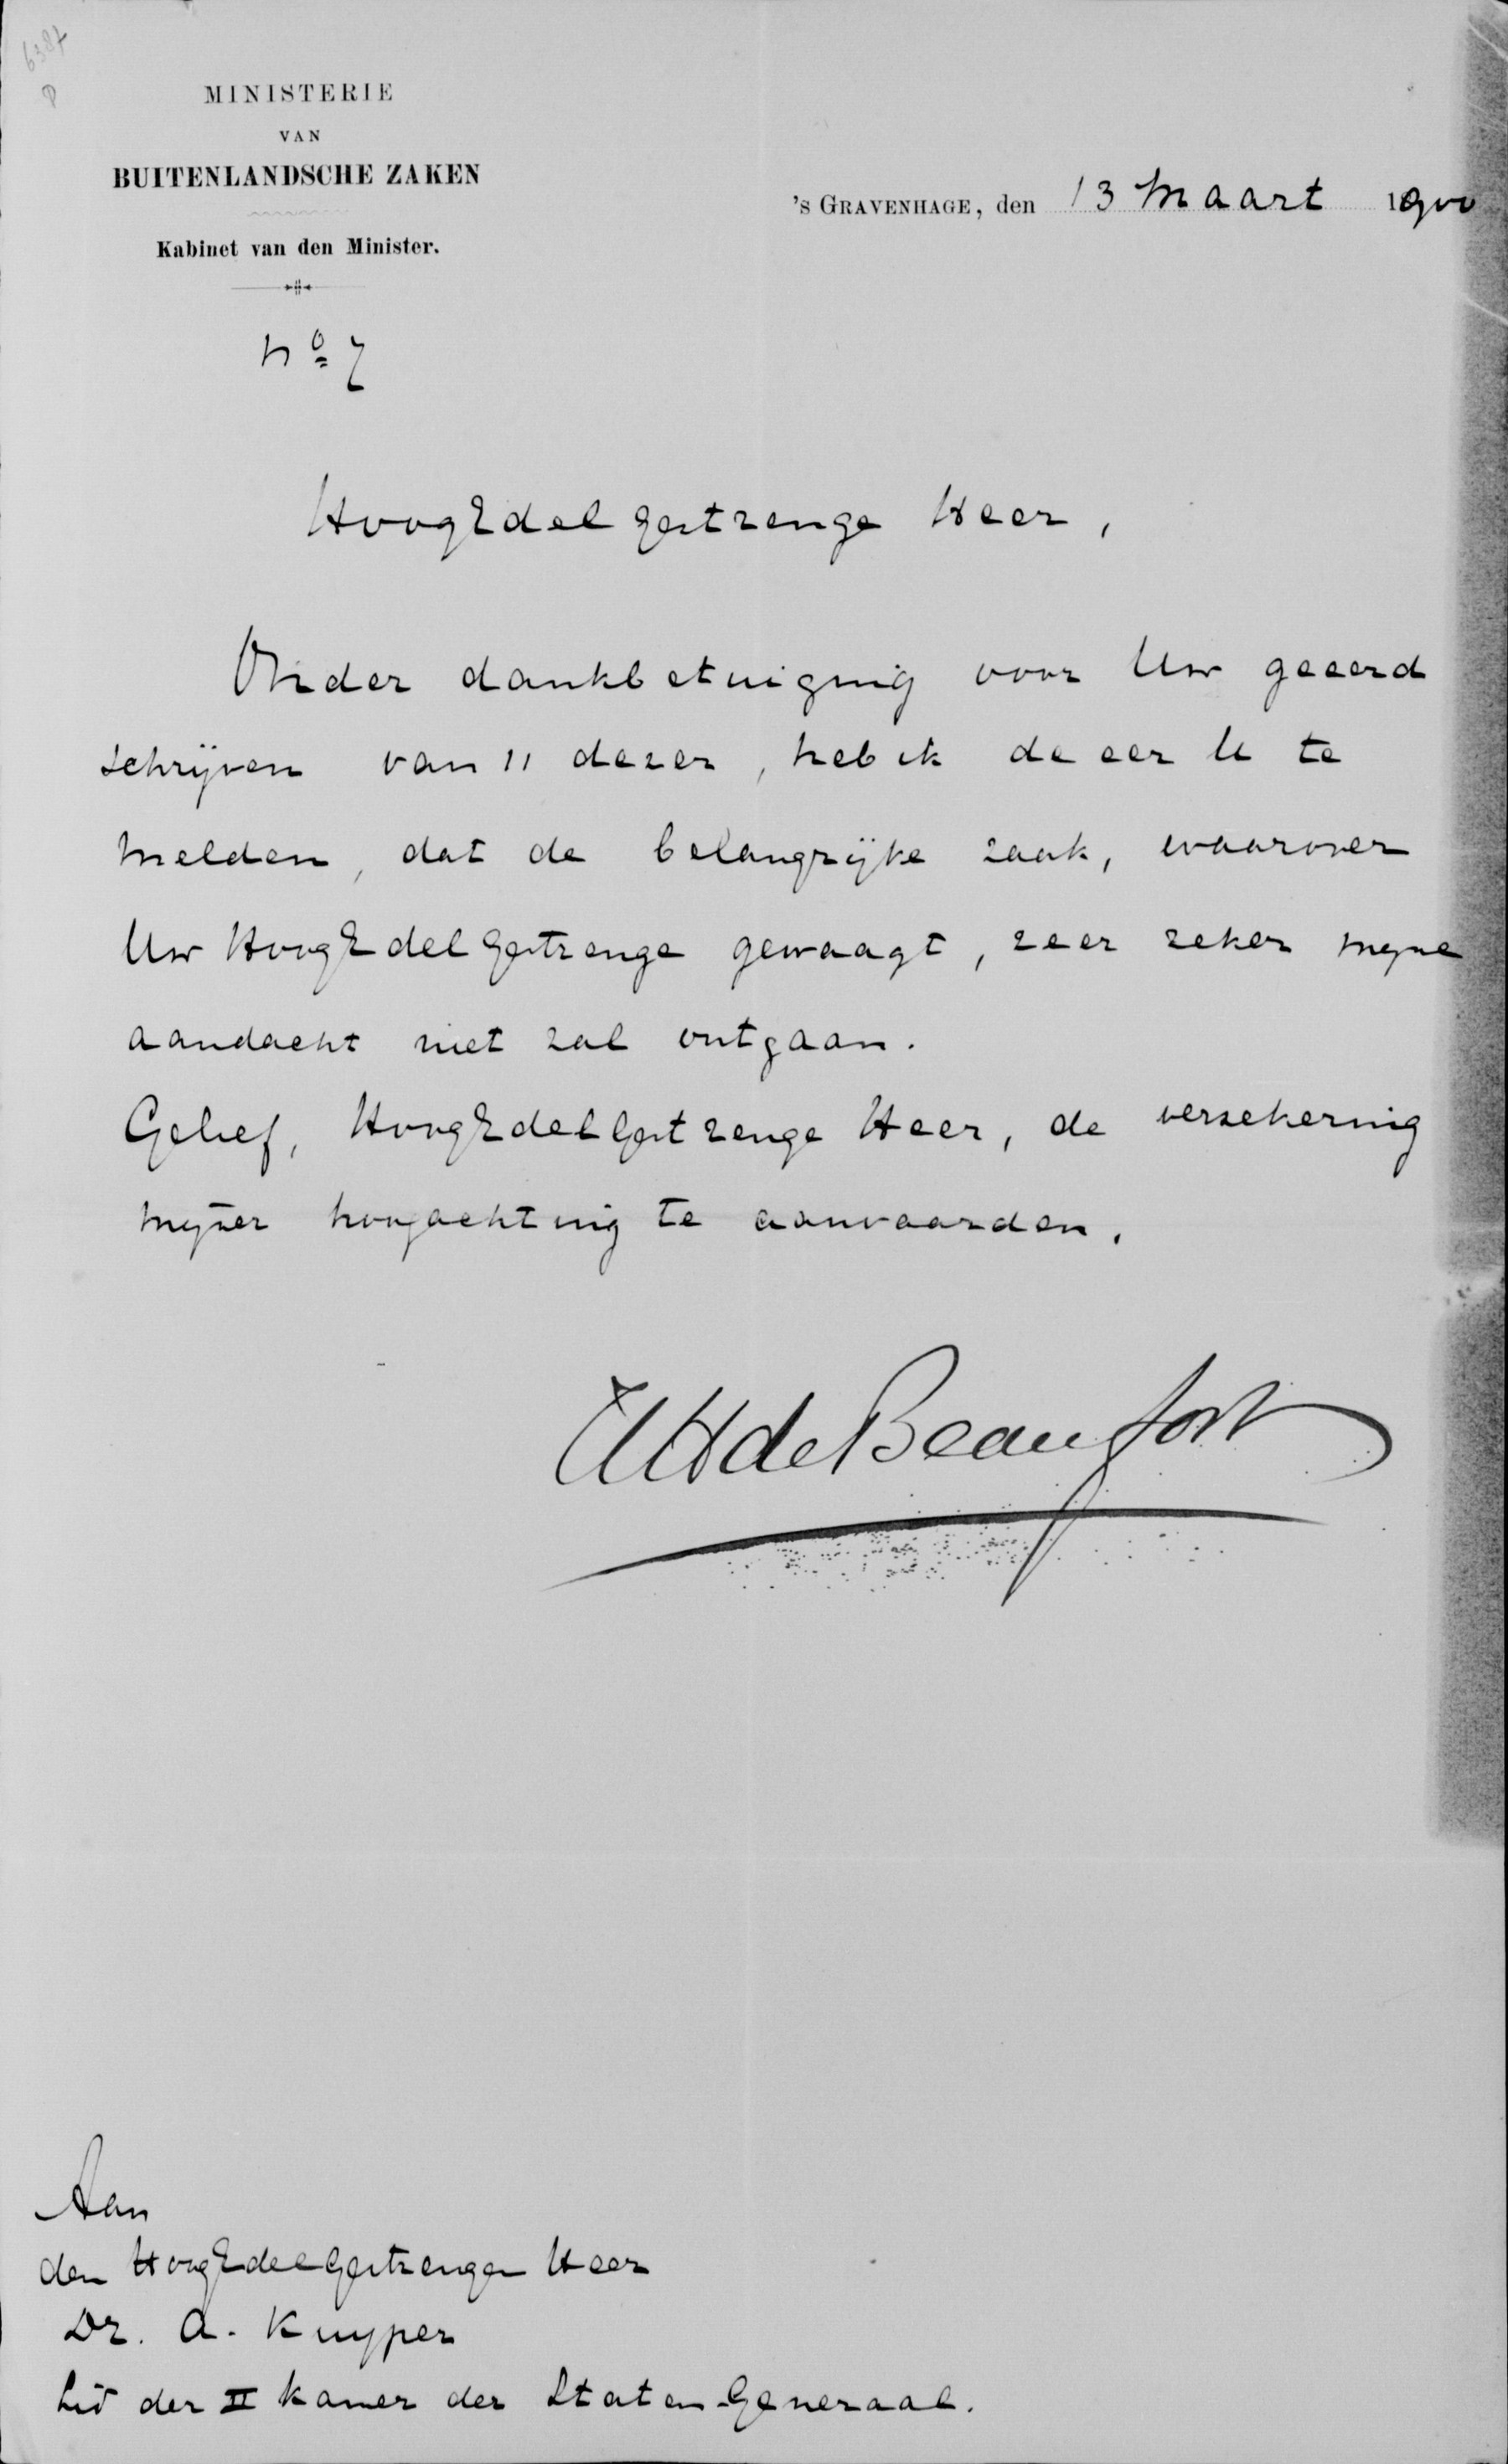 6387
MINISTERIE
VAN
BUITENLANDSCHE ZAKEN
Kabinet van den Minister.
'S GRAVENHAGE, den 13 Maart 1900
No 7
HoogEdelGestrenge Heer,
Onder dankbetuiging voor Uw geeerd
schrijven van 11 dezer, heb ik de eer U te
melden, dat de belangrijke zaak, waarover
Uw HoogEdelGestrenge gewaagt, zeer zeker mijne
aandacht niet zal ontgaan.
Gelief, HoogEdelGestrenge Heer, de verzekering
mijner hoogachting te aanvaarden.
WHdeBeaufort
Aan
den HoogEdelGestrengen Heer
Dr. A. Kuyper
Lid der II Kamer der Staten-Generaal.